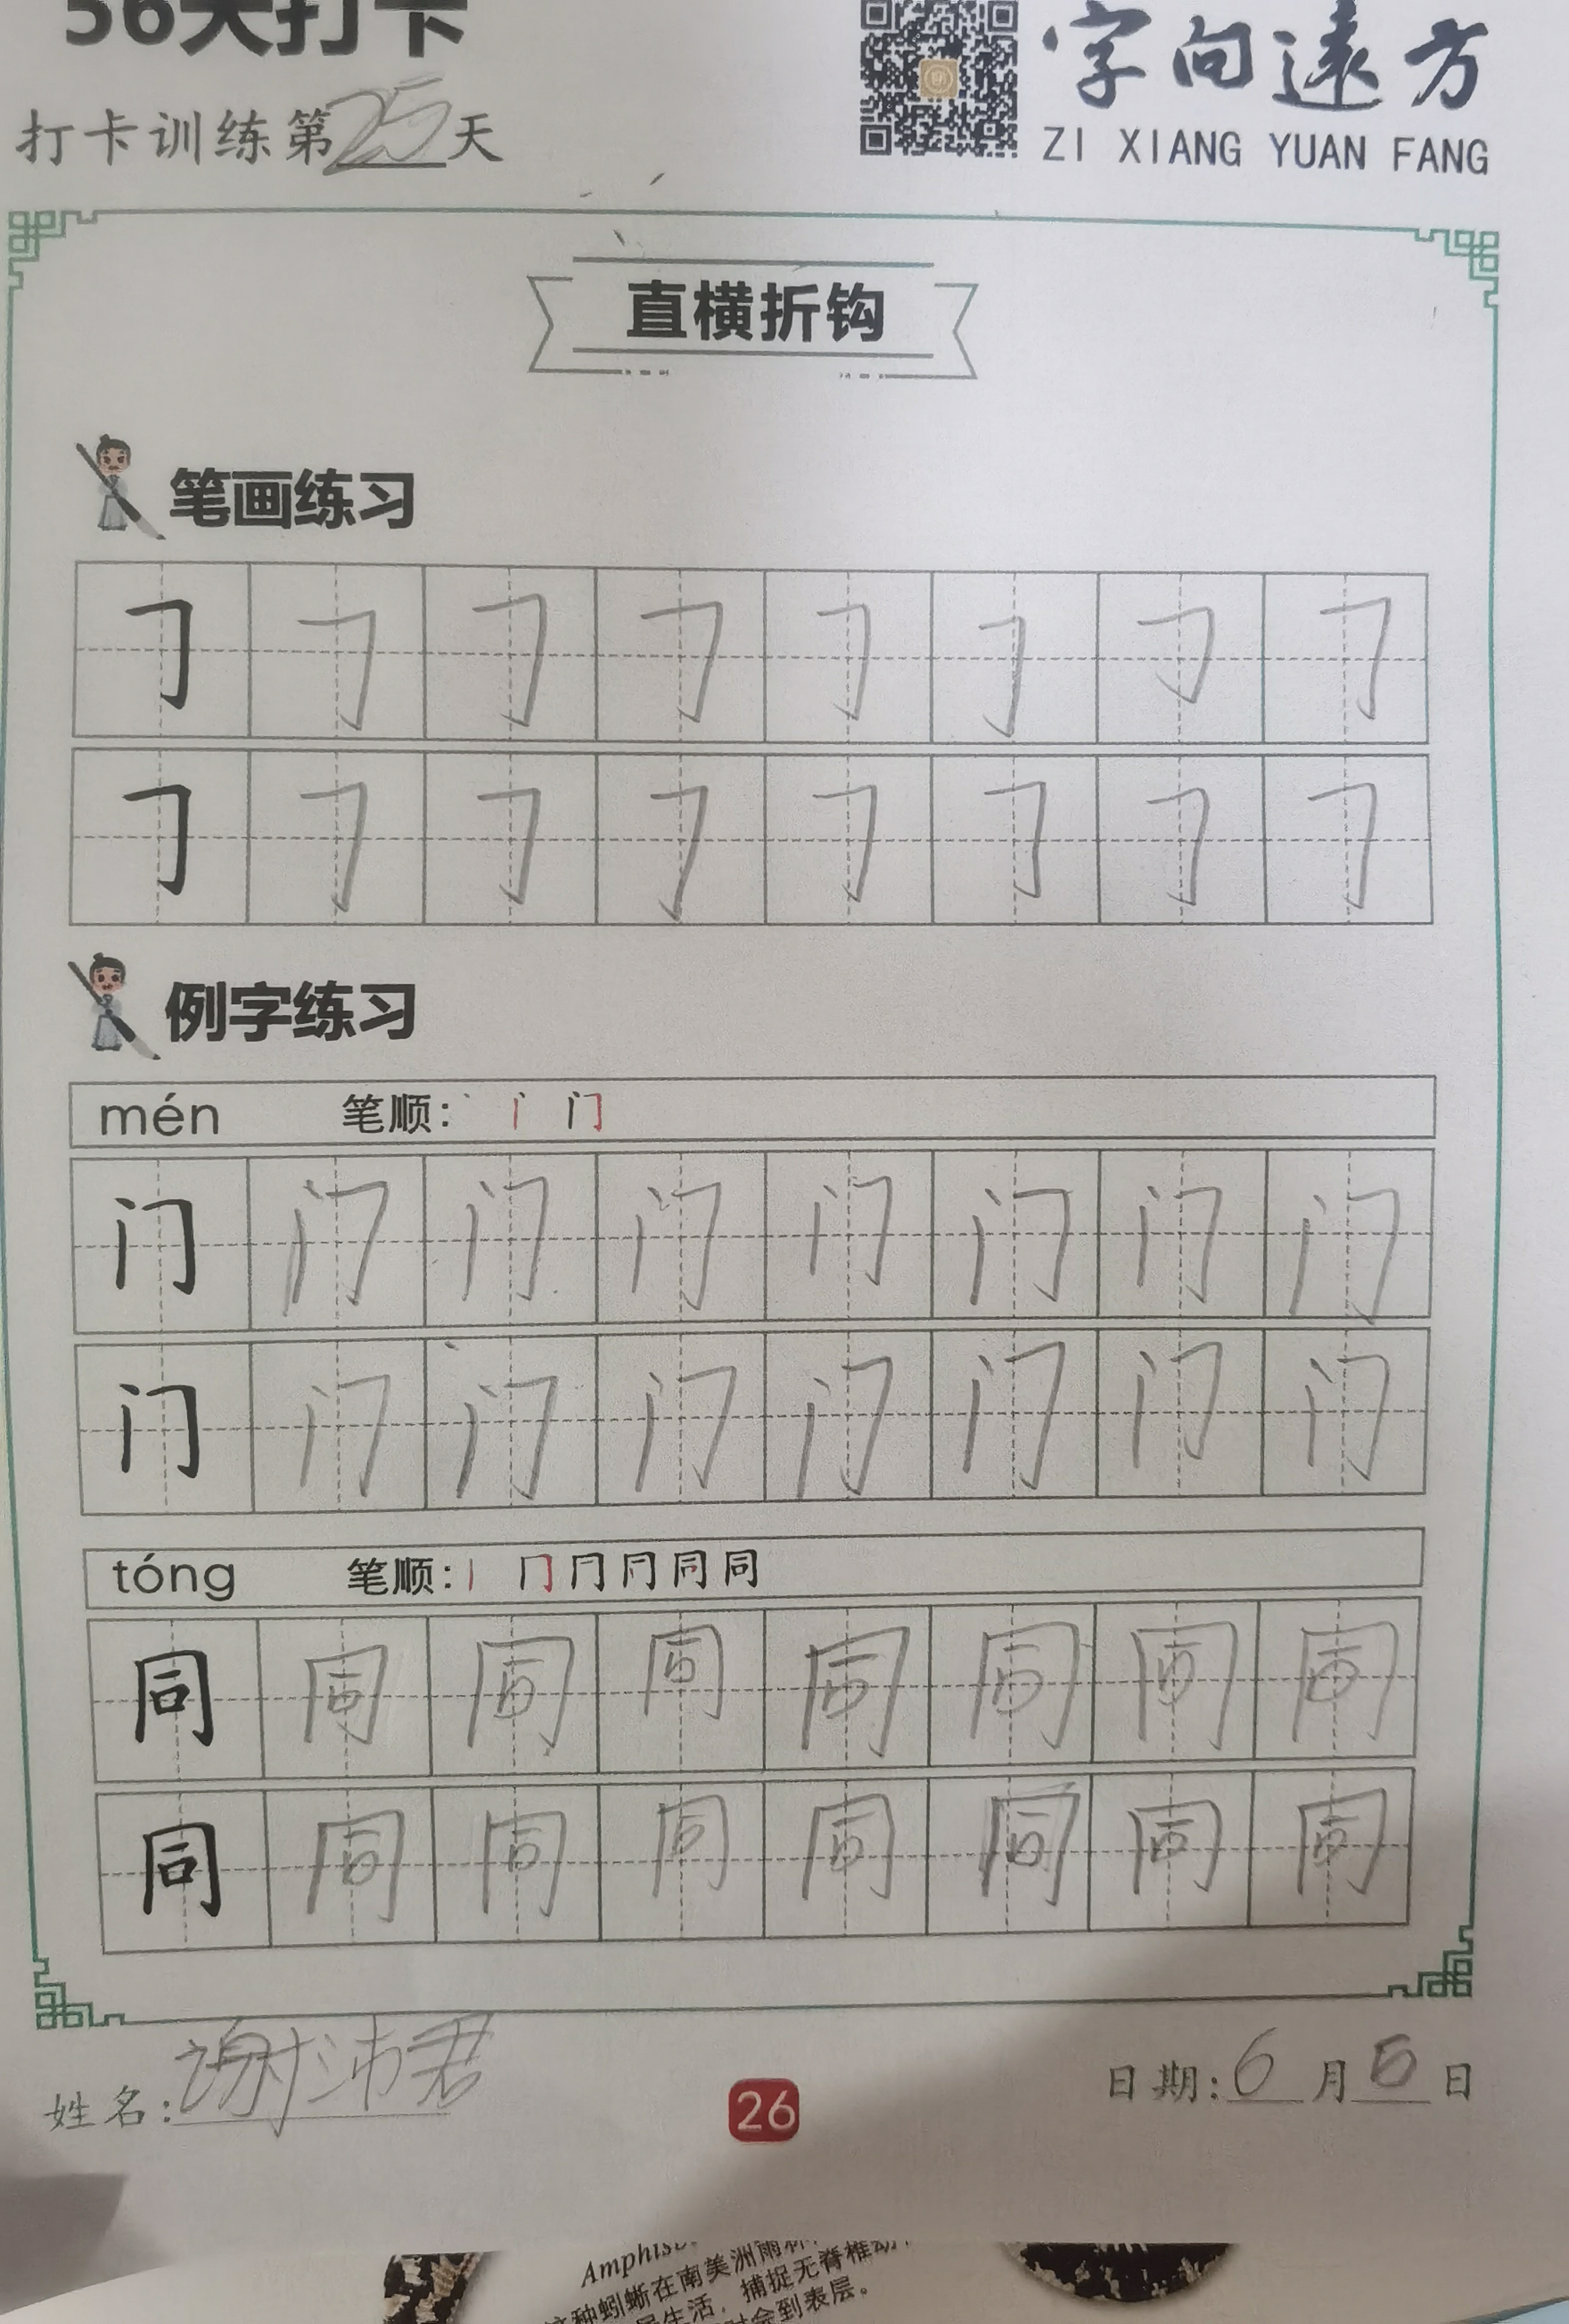 56天打卡
字向遠方
ZI XIANG YUAN FANG
打卡训练第25天
直横折钩
笔画练习
𠃌 𠃌 𠃌 𠃌 𠃌 𠃌 𠃌 𠃌
𠃌 𠃌 𠃌 𠃌 𠃌 𠃌 𠃌 𠃌
例字练习
mén 笔顺: 丶 门
门 门 门 门 门 门 门 门
门 门 门 门 门 门 门 门
tóng 笔顺: 丨 冂 同 同
同 同 同 同 同 同 同 同
同 同 同 同 同 同 同 同
姓名: 谢沛君
26
日期: 6月5日
这种蚓蜥在南美洲雨林
生活，捕捉无脊椎动
会到表层。